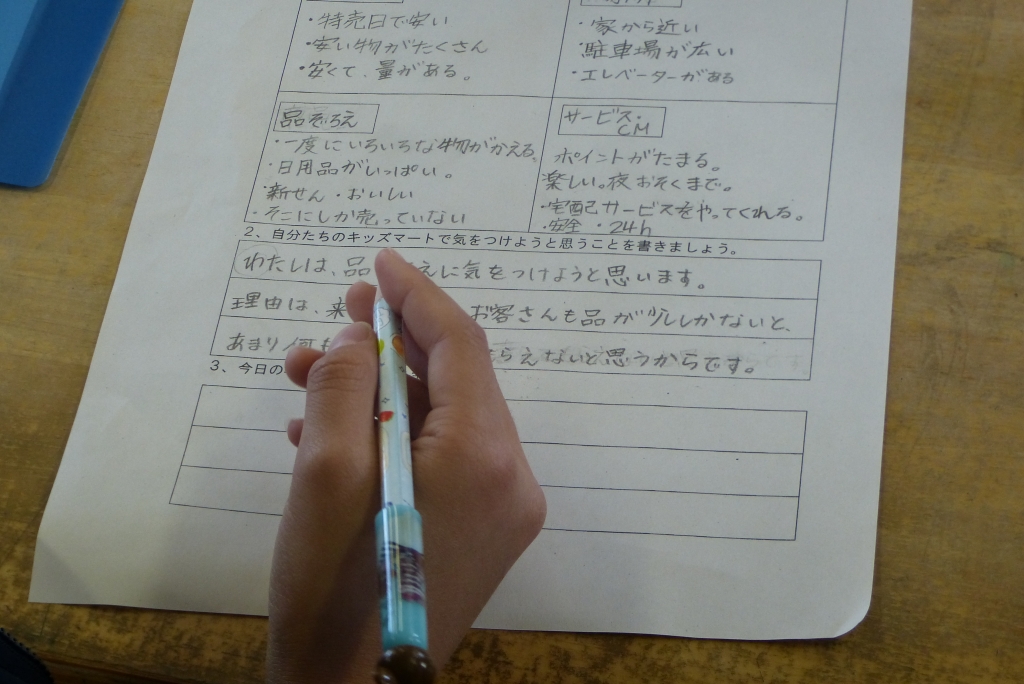 ・特売日で安い
・安い物がたくさん
・安くて、量がある。
・家から近い
・駐車場が広い
・エレベーターがある
品ぞろえ
・一度にいろいろな物がかえる。
・日用品がいっぱい。
・新せん・おいしい
・そこにしか売っていない
サービス・
CM
ポイントがたまる。
楽しい。夜おそくまで。
・宅配サービスをやってくれる。
・安全 ・24h
2、自分たちのキッズマートで気をつけようと思うことを書きましょう。
わたしは、品 えに気をつけようと思います。
理由は、来 お客さんも品が少ししかないと、
あまり何も らえないと思うからです。
3、今日の